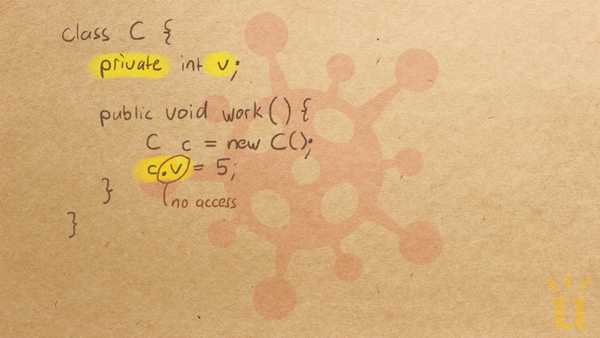 class C {
private int v;
public void work() {
C c = new C();
c.v = 5;
no access
}
}